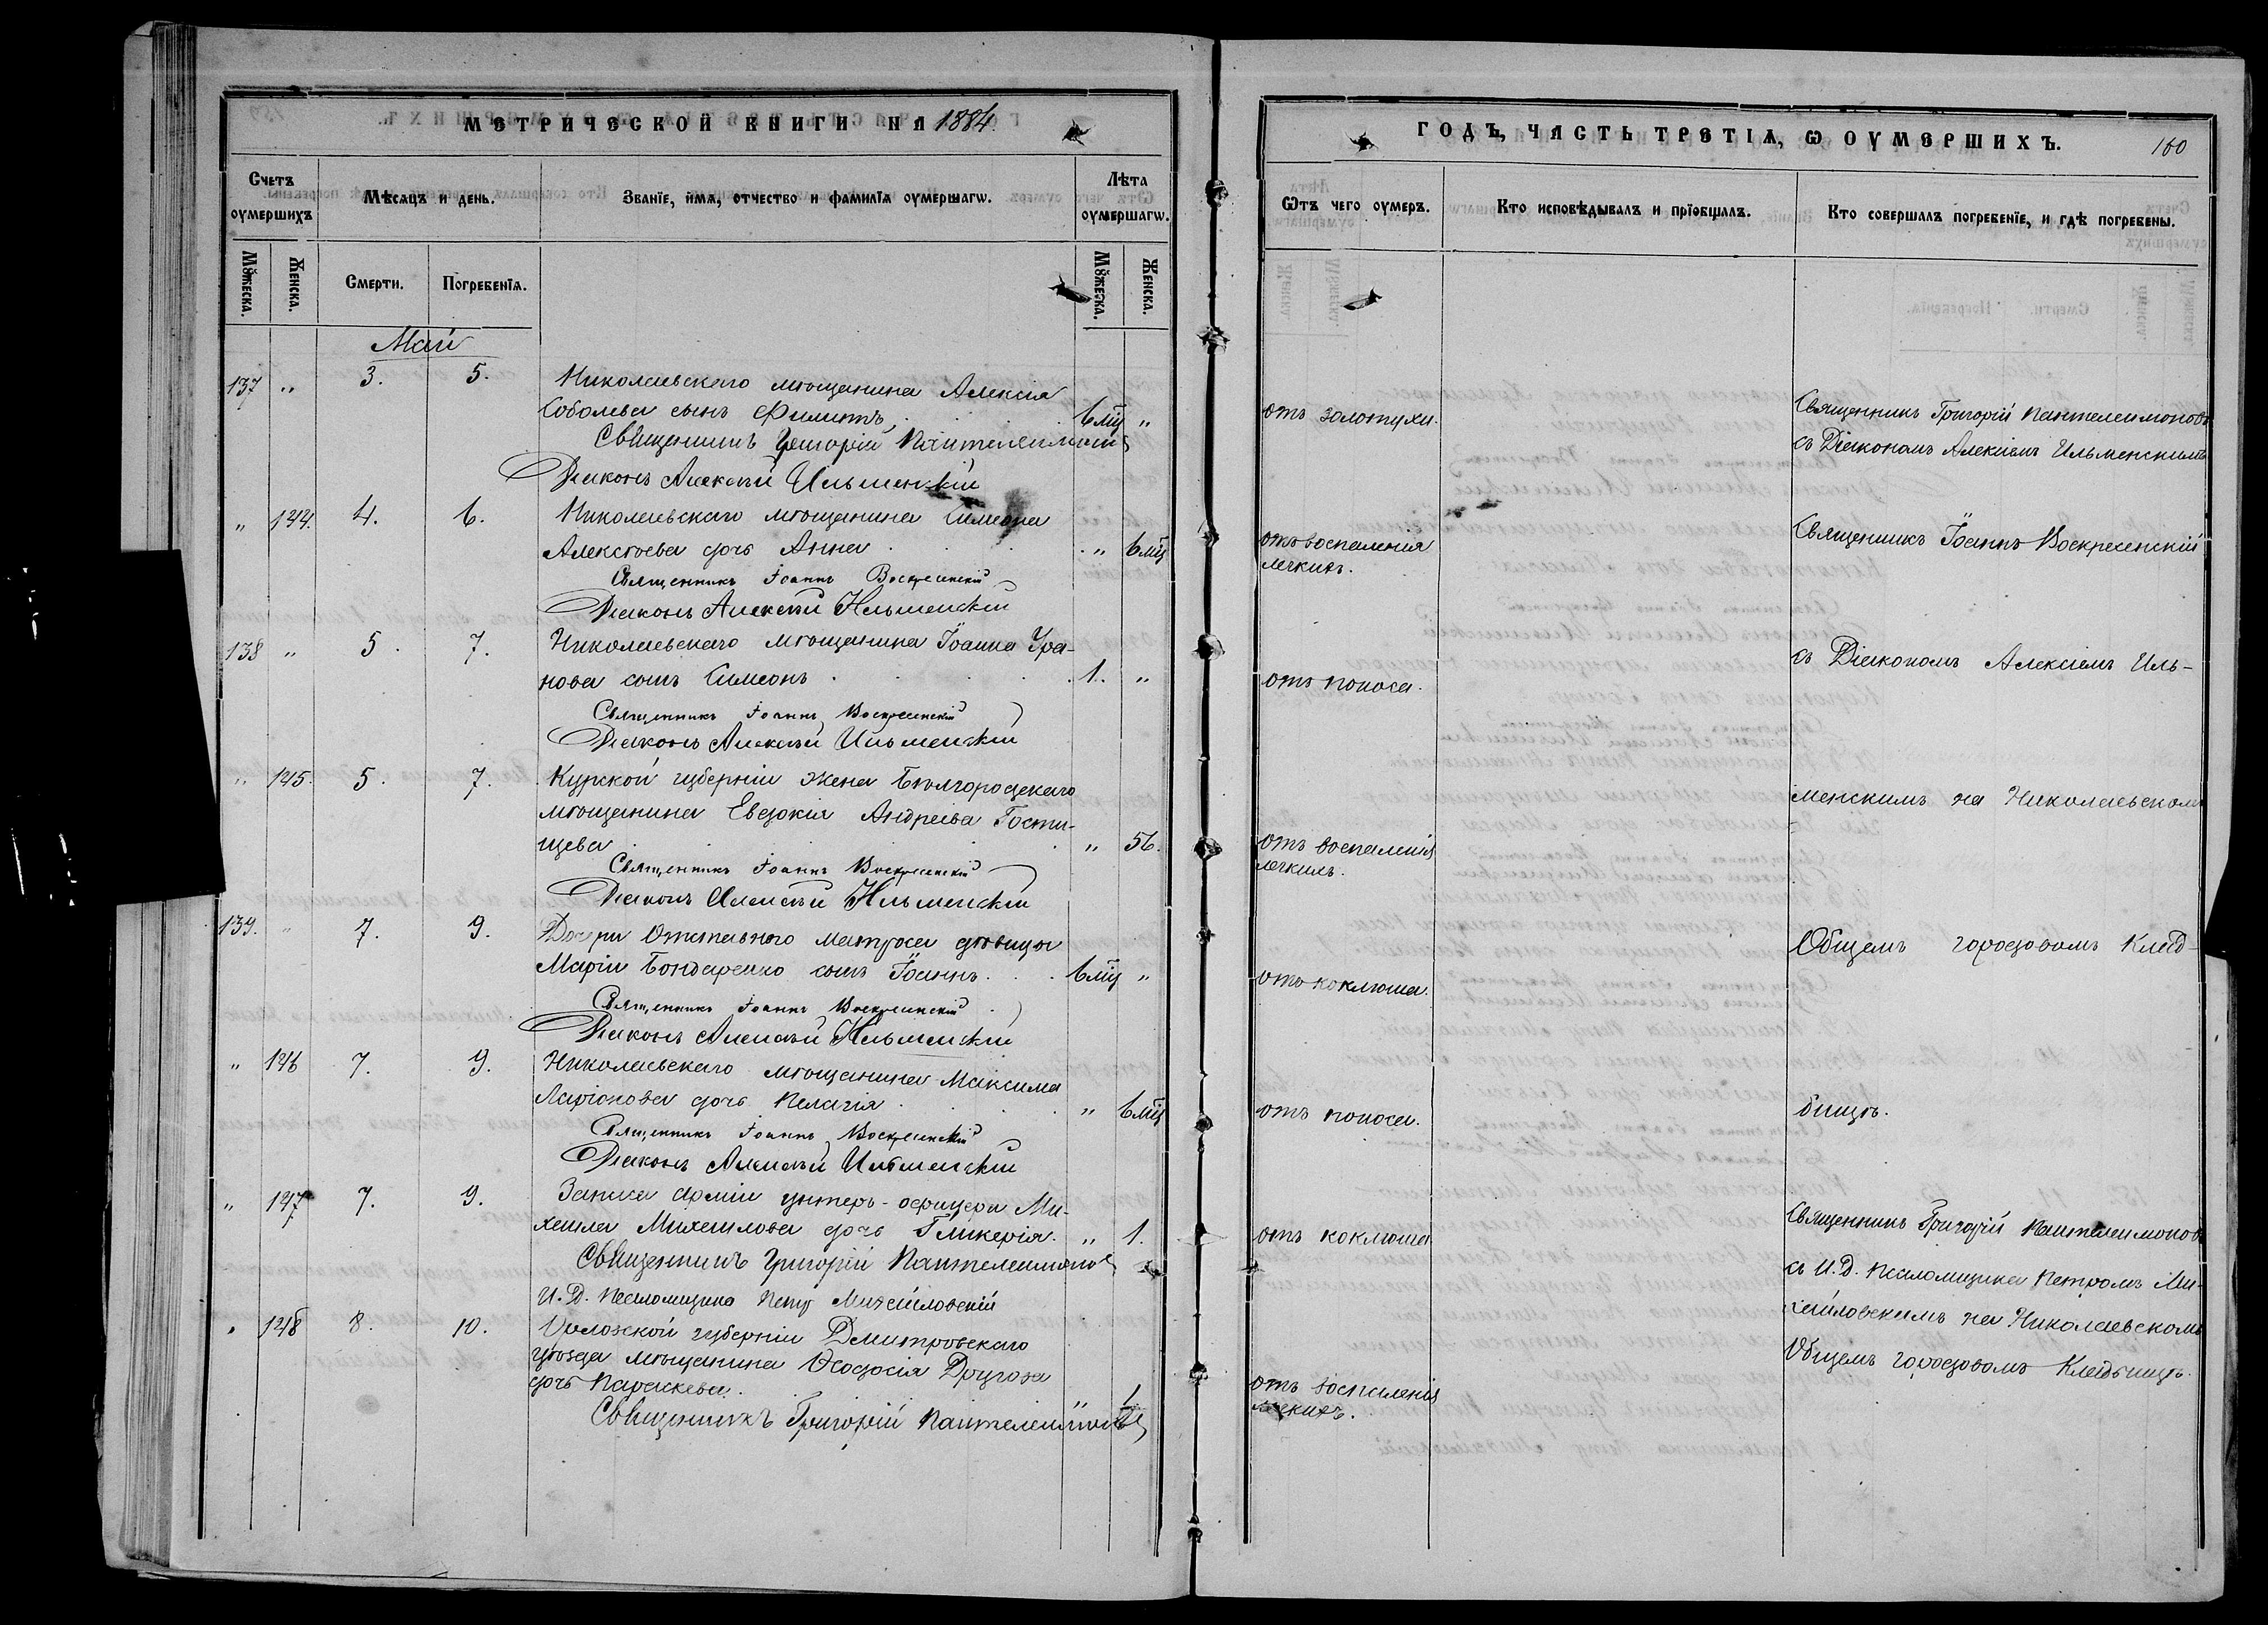 МЕТРИЧЕСКОЙ КНИГИ НА 1884.
Счетъ оумершихъ
Мѣсяцъ и день.
Званїе, имя, отчество и фамилїа оумершагѡ.
Лѣта оумершагѡ.
Мꙋжеска.
Женска.
Смерти.
Погребенїѧ.
Мꙋжеска.
Женска.
Май
137 " 3. 5. Николаевскаго мѣщанина Алексія
Соболева сынъ Филиппъ. 6 мц "
Священникъ Григорій Пантелеимоновъ
Діаконъ Алексій Ильменскій
" 144. 4. 6. Николаевскаго мѣщанина Симеона
Алексѣева дочь Анна . " 6 мц
Священникъ Іоаннъ Воскресенскій
Діаконъ Алексій Ильменскій
138 " 5. 7. Николаевскаго мѣщанина Іоанна Ура-
нова сынъ Симеонъ . 1. "
Священникъ Іоаннъ Воскресенскій
Діаконъ Алексій Ильменскій
" 145. 5. 7. Курской губерніи жена Бѣлгородскаго
мѣщанина Евдокія Андреева Гости-
щева . " 56.
Священникъ Іоаннъ Воскресенскій
Діаконъ Алексій Ильменскій
139. " 7. 9. Дочери Отставного матроса дѣвицы
Маріи Бондаренко сынъ Іоаннъ . 6 мц "
Священникъ Іоаннъ Воскресенскій
Діаконъ Алексій Ильменскій
" 146 7. 9. Николаевскаго мѣщанина Максима
Ларіонова дочь Пелагія . " 6 мц
Священникъ Іоаннъ Воскресенскій
Діаконъ Алексій Ильменскій
" 147 7. 9. Запаса арміи унтеръ-офицера Ми-
хаила Михаилова дочь Гликерія. " 1.
Священникъ Григорій Пантелеимоновъ
И. Д. Псаломщика Петръ Михайловскій
" 148 8. 10. Орловской губерніи Дмитровскаго
уѣзда мѣщанина Ѳеодосія Другова
дочь Параскева. "
Священникъ Григорій Пантелеимоновъ
ГОДЪ, ЧАСТЬ ТРЕТІѦ, Ѡ ОУМЕРШИХЪ.
160
Ѿтъ чего оумеръ.
Кто исповѣдывалъ и прїобщалъ.
Кто совершалъ погребенїе, и гдѣ погребены.
отъ золотухи.
Священникъ Григорій Пантелеимоновъ
съ Діакономъ Алексіемъ Ильменскимъ
отъ воспаленія
легкихъ.
Священникъ Іоаннъ Воскресенскій
съ Діакономъ Алексіемъ Иль-
отъ поноса.
менскимъ на Николаевскомъ
отъ воспаленія
легкихъ.
Общемъ городовомъ Клад-
отъ коклюша.
бищѣ.
отъ поноса.
Священникъ Григорій Пантелеимоновъ
отъ коклюша
съ И. Д. Псаломщика Петромъ Ми-
хайловскимъ на Николаевскомъ
Общемъ городовомъ Кладбищѣ.
отъ воспаленія
легкихъ.